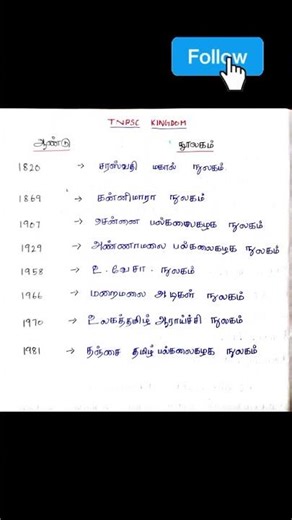 Follow
TNPSC KINGDOM
ஆண்டு நூலகம்
1820 → சரஸ்வதி மகால் நூலகம்
1869 → கன்னிமாரா நூலகம்
1907 → சென்னை பல்கலைகழக நூலகம்
1929 → அண்ணாமலை பல்கலைகழக நூலகம்
1958 → உ.வே.சா. நூலகம்
1966 → மறைமலை அடிகள் நூலகம்
1970 → உலகத்தமிழ் ஆராய்ச்சி நூலகம்
1981 → தஞ்சை தமிழ் பல்கலைகழக நூலகம்